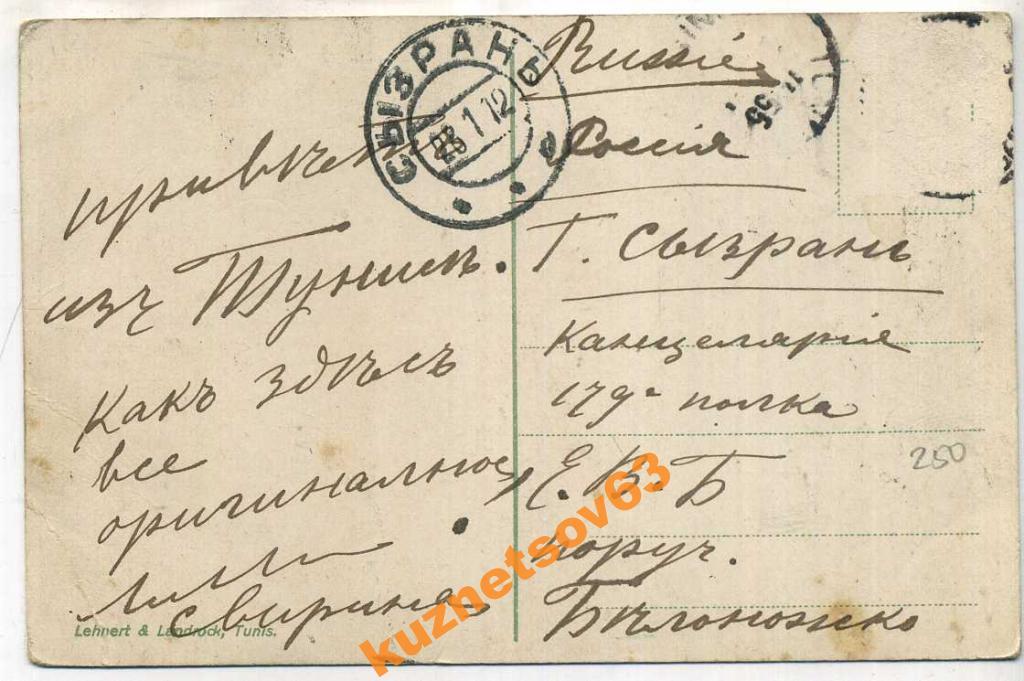 СЫЗРАНЬ
28 1 12
Привѣтъ
изъ Туниса.
Какъ здѣсь
все
оригинально,
Свирина
Lehnert & Landrock, Tunis.
Russie
Россія
Г. Сызрань
Канцелярія
179го полка
Е. В. Б
поруч.
Бѣлоножко
250
kuzhetsov63